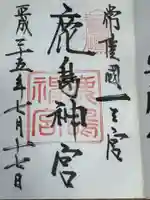 常陸國一之宮
鹿島神宮
鹿嶋神宮
平成二十五年七月二十七日